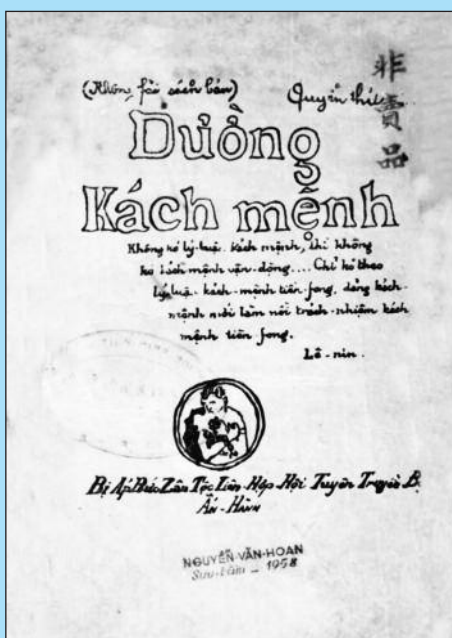 (Không fải sách bán) Quyển thứ
非賣品
Dường
Kách mệnh
Không kó lý-luận kách mệnh, thì không
kó kách mệnh vận-động.... Chỉ kó theo
lý luận kách-mệnh tiền-fong, đảng kách-
mệnh mới làm nổi trách-nhiệm kách
mệnh tiền fong.
Lê-nin.
Bị Áp Bức Zân Tộc Liên-Hợp-Hội Tuyên Truyền B.
Ấn-Hành
NGUYỄN-VĂN-HOAN
Sưu-tầm _ 1958